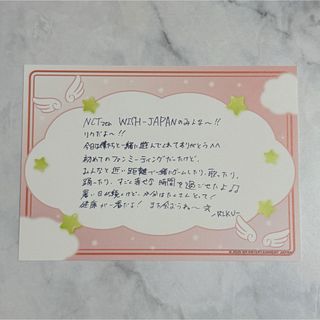 NCTzen WISH-JAPANのみんな〜!!
りくだよ〜!!
今日は僕たちと一緒に遊んでくれてありがとう^^
初めてのファンミーティングだったけど、
みんなと近い距離で一緒にゲームしたり、歌ったり、
踊ったり、すごく幸せな時間を過ごせたよ♪♪
暑い日が続くけど、水分はたくさんとって!
健康が一番だよ! また会おうね〜☆
-RIKU-